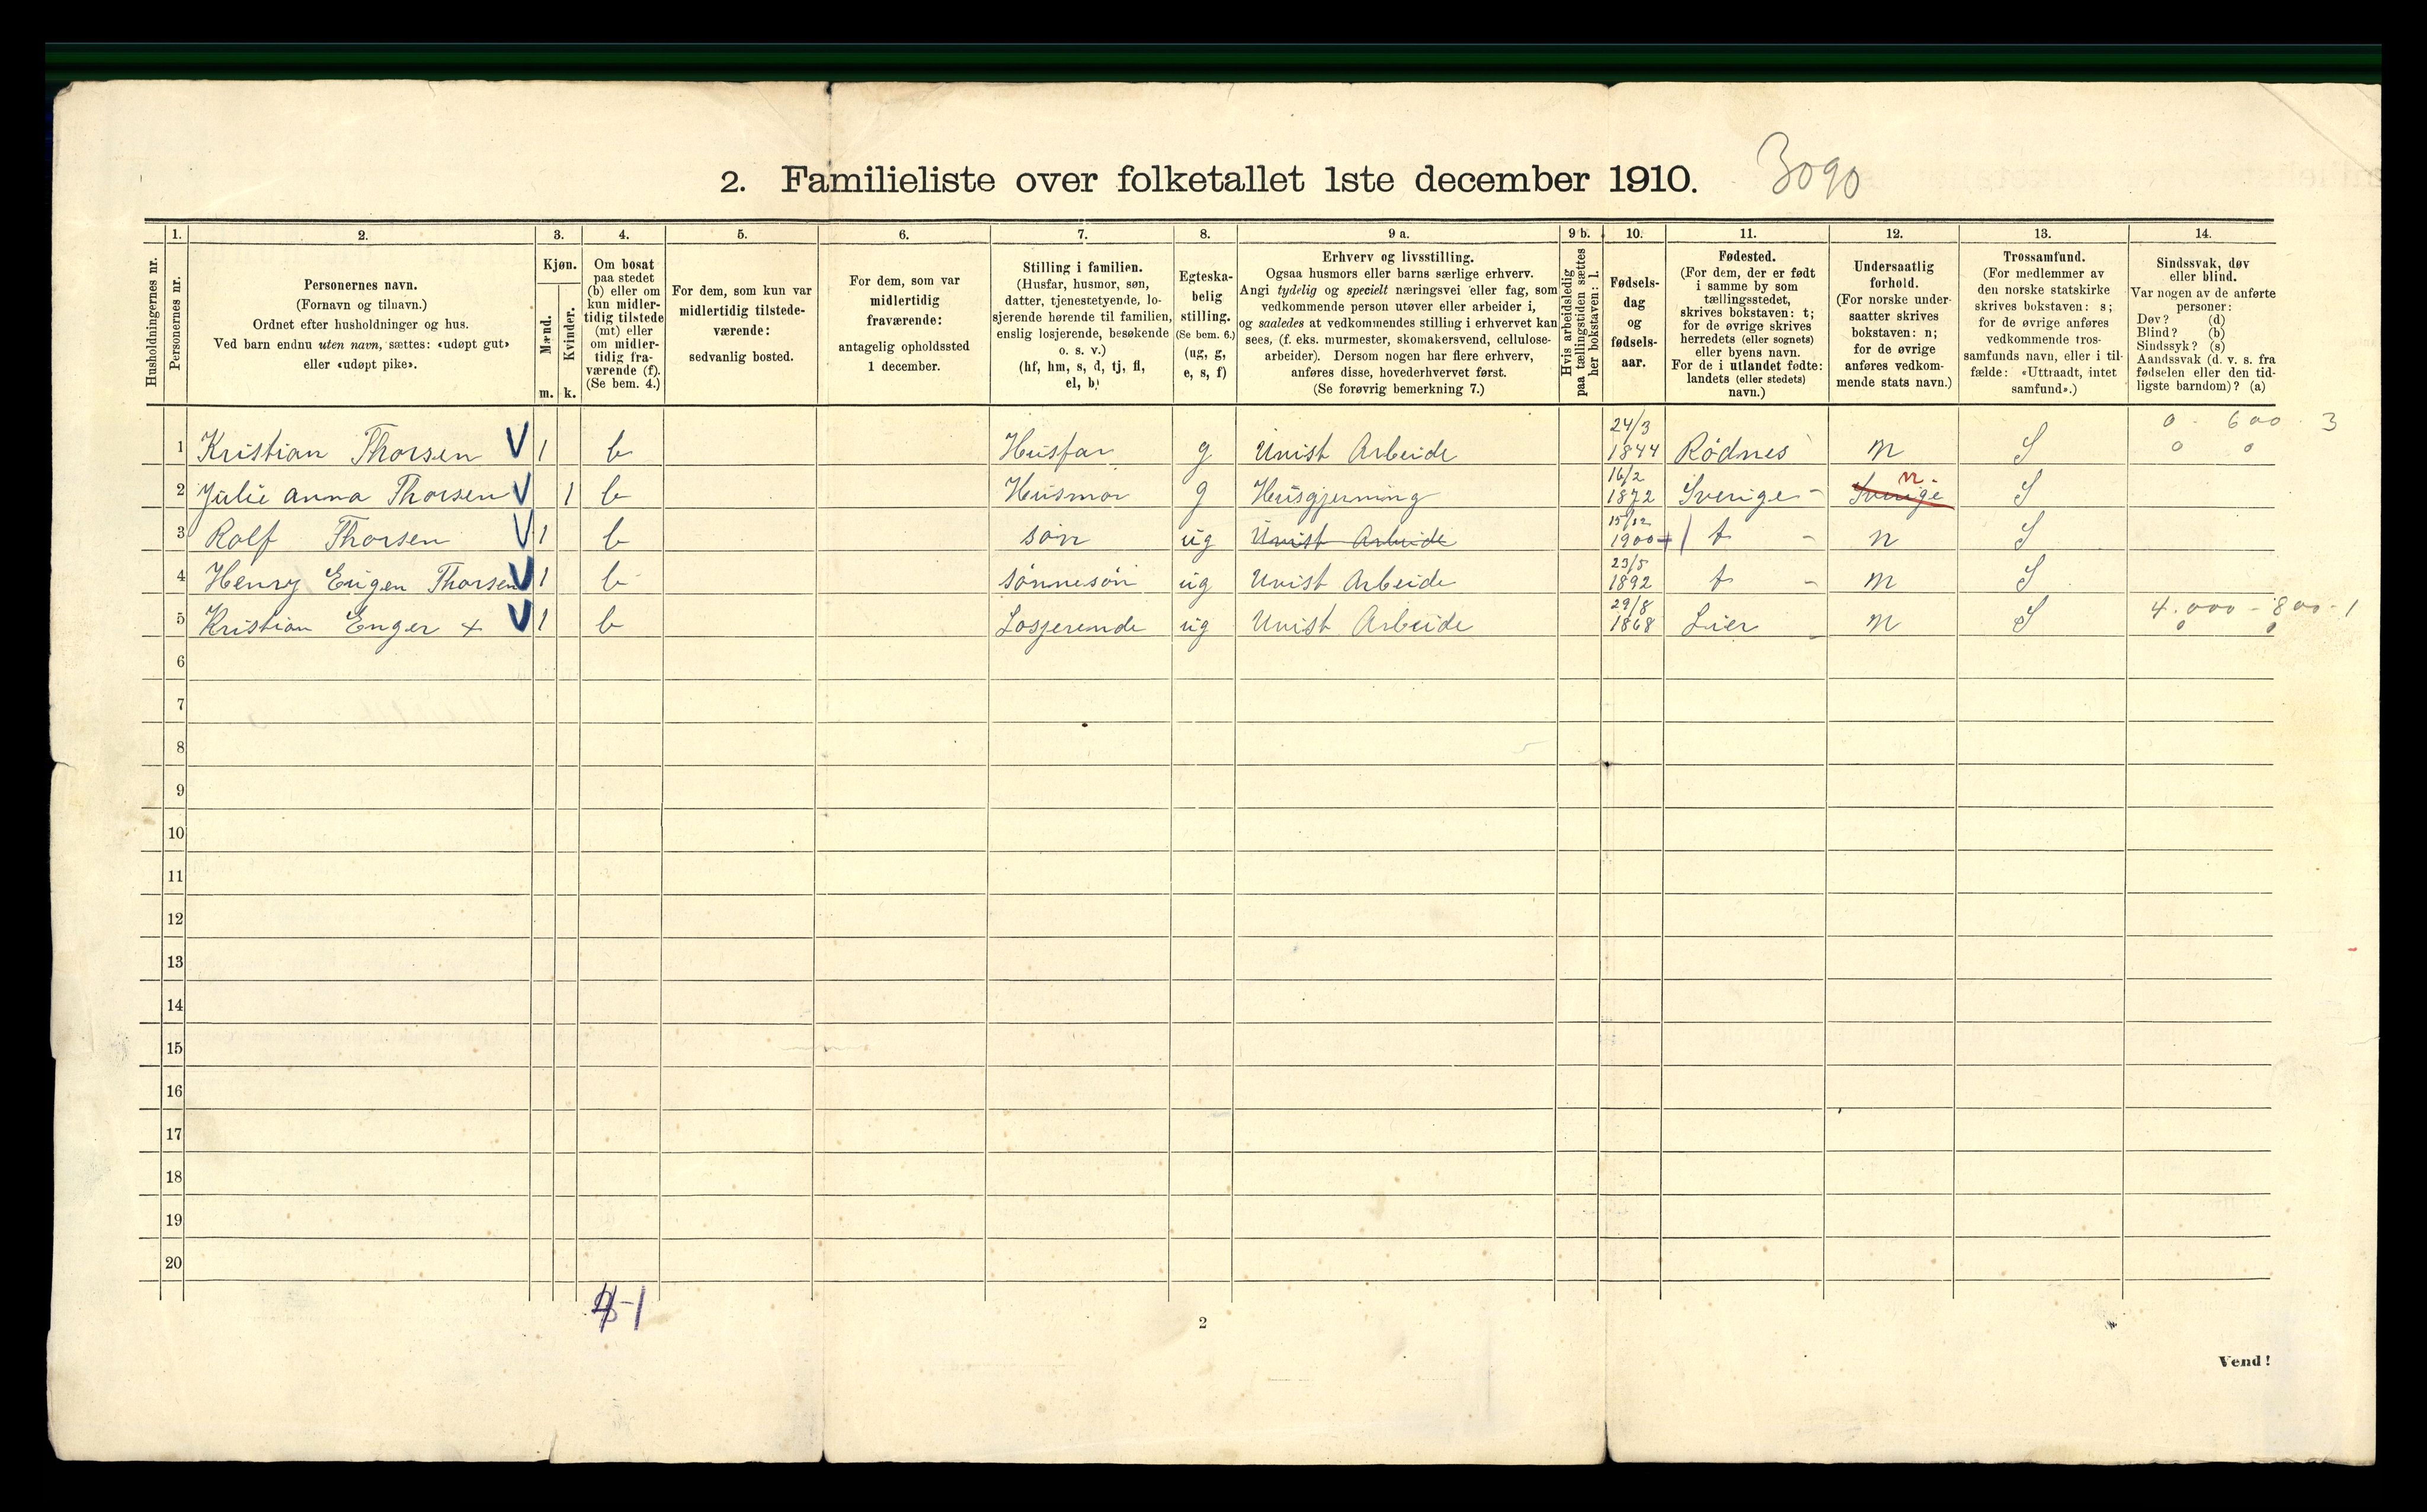 2. Familieliste over folketallet 1ste december 1910. 3090
Husholdningernes nr.
1. Personernes nr.
2. Personernes navn.
(Fornavn og tilnavn.)
Ordnet efter husholdninger og hus.
Ved barn endnu uten navn, sættes: «udøpt gut»
eller «udøpt pike».
3. Kjøn.
Mænd. m.
Kvinder. k.
4. Om bosat
paa stedet
(b) eller om
kun midler-
tidig tilstede
(mt) eller
om midler-
tidig fra-
værende (f).
(Se bem. 4.)
5. For dem, som kun var
midlertidig tilstede-
værende:
sedvanlig bosted.
6. For dem, som var
midlertidig
fraværende:
antagelig opholdssted
1 december.
7. Stilling i familien.
(Husfar, husmor, søn,
datter, tjenestetyende, lo-
sjerende hørende til familien,
enslig losjerende, besøkende
o. s. v.)
(hf, hm, s, d, tj, fl,
el, b)
8. Egteska-
belig
stilling.
(Se bem. 6.)
(ug, g,
e, s, f)
9 a. Erhverv og livsstilling.
Ogsaa husmors eller barns særlige erhverv.
Angi tydelig og specielt næringsvei eller fag, som
vedkommende person utøver eller arbeider i,
og saaledes at vedkommendes stilling i erhvervet kan
sees, (f. eks. murmester, skomakersvend, cellulose-
arbeider). Dersom nogen har flere erhverv,
anføres disse, hovederhvervet først.
(Se forøvrig bemerkning 7.)
9 b. Hvis arbeidsledig
paa tællingstiden sættes
her bokstaven: l.
10. Fødsels-
dag
og
fødsels-
aar.
11. Fødested.
(For dem, der er født
i samme by som
tællingsstedet,
skrives bokstaven: t;
for de øvrige skrives
herredets (eller sognets)
eller byens navn.
For de i utlandet fødte:
landets (eller stedets)
navn.)
12. Undersaatlig
forhold.
(For norske under-
saatter skrives
bokstaven: n;
for de øvrige
anføres vedkom-
mende stats navn.)
13. Trossamfund.
(For medlemmer av
den norske statskirke
skrives bokstaven: s;
for de øvrige anføres
vedkommende tros-
samfunds navn, eller i til-
fælde: «Uttraadt, intet
samfund».)
14. Sindssvak, døv
eller blind.
Var nogen av de anførte
personer:
Døv? (d)
Blind? (b)
Sindssyk? (s)
Aandssvak (d. v. s. fra
fødselen eller den tid-
ligste barndom)? (a)
1 Kristian Thorsen V 1 b Husfar g Uvist Arbeide 24/3 1844 Rødnes n S 0 - 600 - 3
0 0
2 Julie Anna Thorsen V 1 b Husmor g Husgjerning 16/2 1872 Sverige - Sverige n. S
3 Rolf Thorsen V 1 b søn ug Uvist Arbeide 15/12 1900 t - n S
4 Henry Eugen Thorsen V 1 b sønnesøn ug Uvist Arbeide 23/5 1892 t - n S
5 Kristian Enger + V 1 b Losjerende ug Uvist Arbeide 29/8 1868 Lier - n S 4.000 - 800 - 1
0 0
6
7
8
9
10
11
12
13
14
15
16
17
18
19
20
2
Vend!